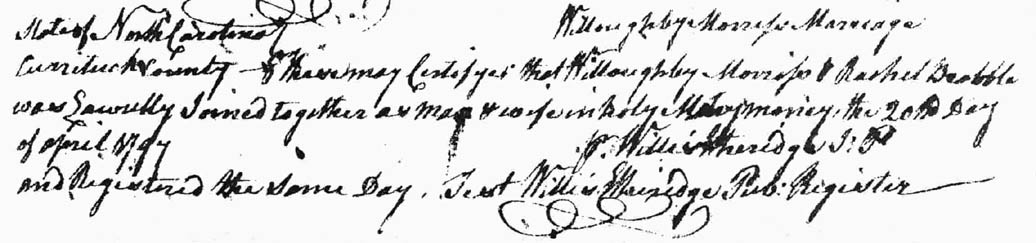 State of North Carolina Willoughby Morriss Marriage
Currituck County These may Certifyes that Willoughby Morriss & Rachel Brabble
was Lawully Joined together as man & wife in holy Matrimoney the 20th Day
of april 1797 pr. Willis Etheridge J: P
and Registered the Same Day. Test Willis Etheridge Pub: Register